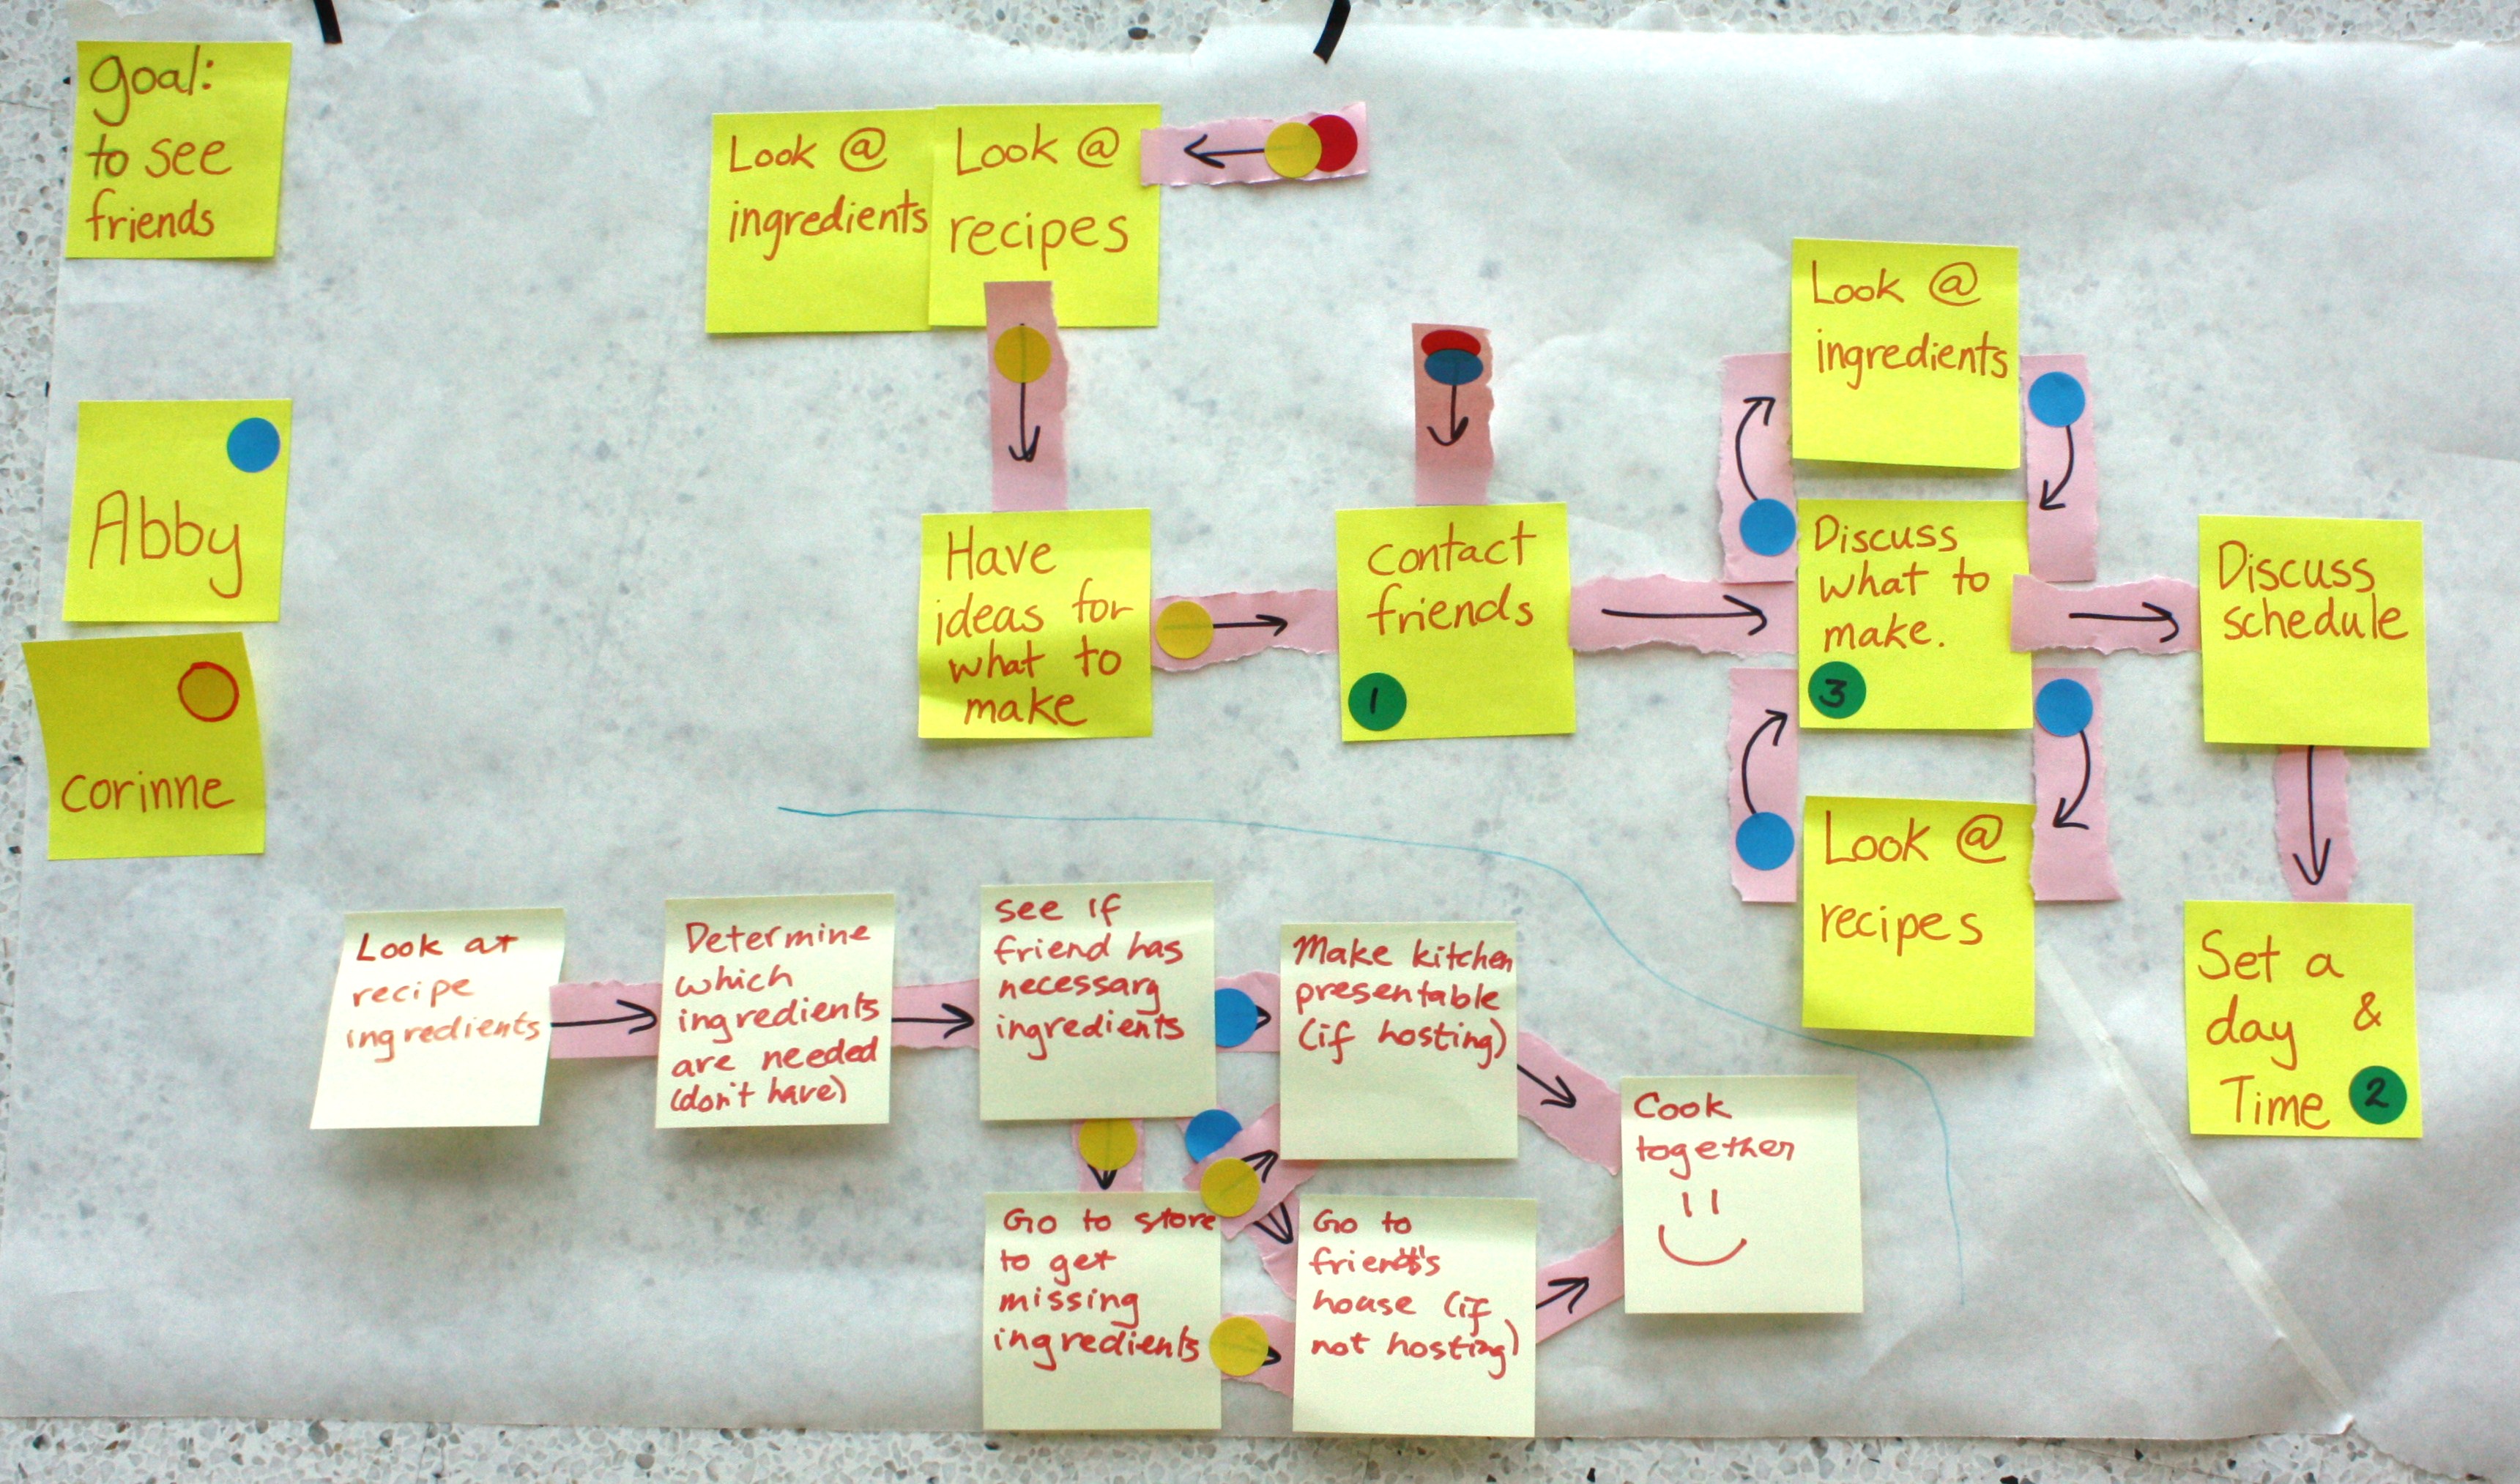 goal:
to see
friends
Abby
corinne
Look @
ingredients
Look @
recipes
Have
ideas for
what to
make
contact
friends
1
Look @
ingredients
Discuss
what to
make.
3
Look @
recipes
Discuss
schedule
Set a
day &
Time 2
Look at
recipe
ingredients
Determine
which
ingredients
are needed
(don't have)
see if
friend has
necessary
ingredients
Make kitchen
presentable
(if hosting)
Go to store
to get
missing
ingredients
Go to
friend's
house (if
not hosting)
Cook
together